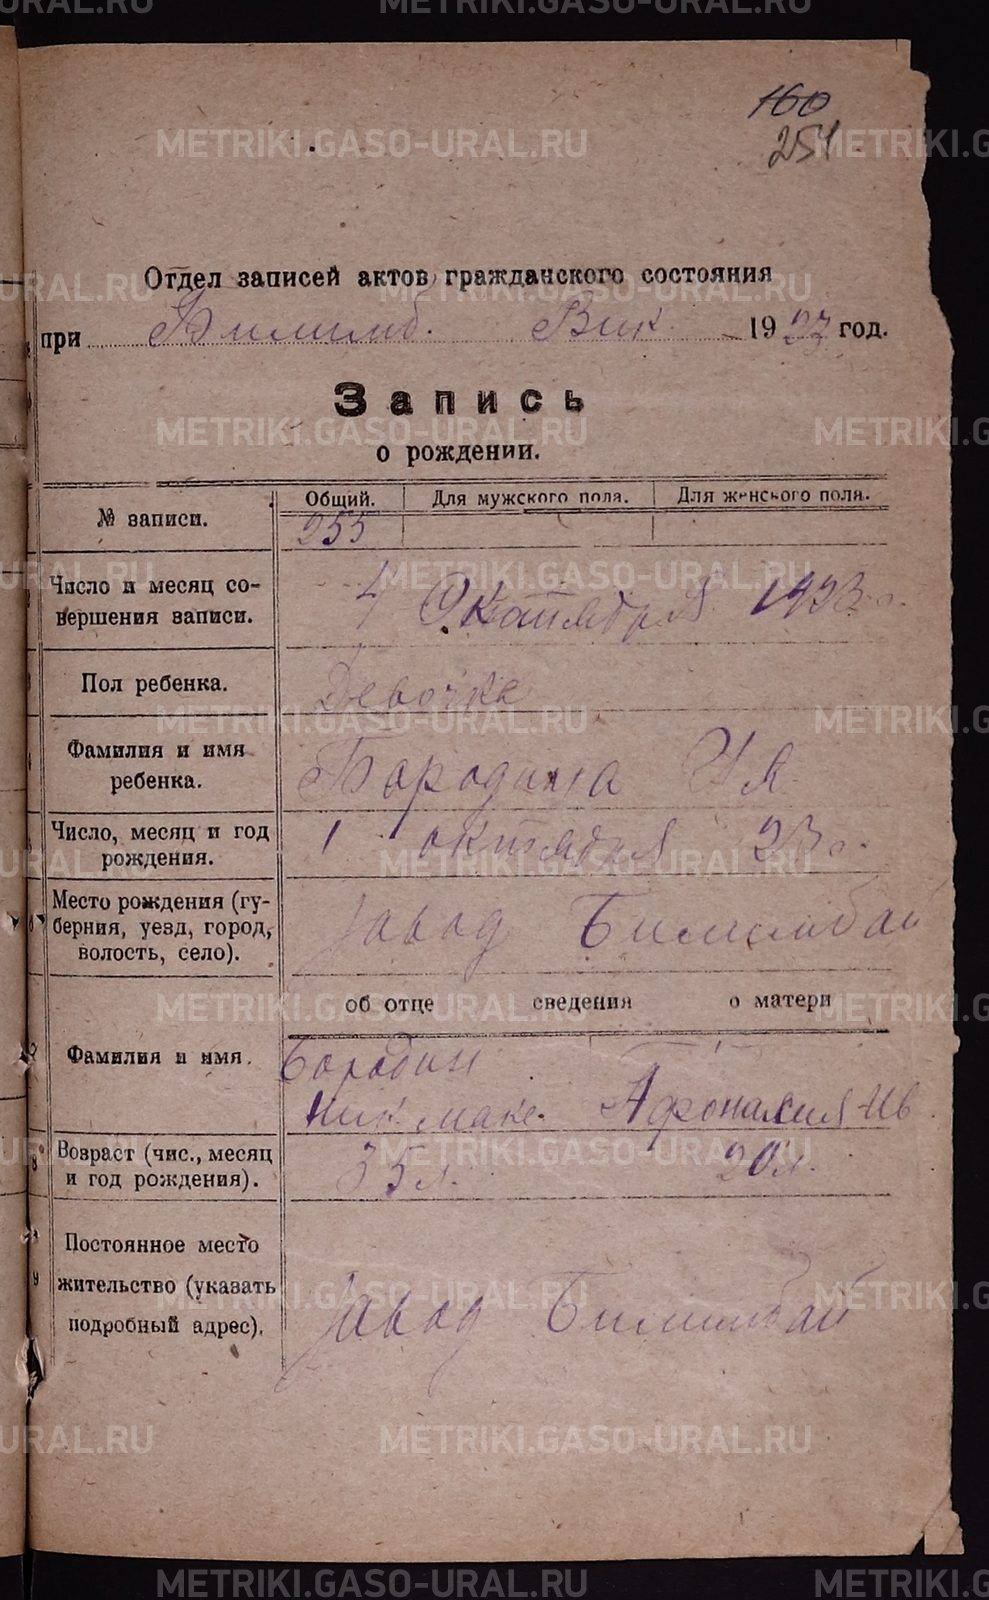 160
254
Отдел записей актов гражданского состояния
при Билимб. Вик. 1923 год.
Запись
о рождении.
№ записи.
Общий. Для мужского пола. Для женского пола.
255
Число и месяц со-
вершения записи.
4 Октября 1923 г.
Пол ребенка.
Девочка
Фамилия и имя
ребенка.
Бородина
Число, месяц и год
рождения.
1 октября 23 г.
Место рождения (гу-
берния, уезд, город,
волость, село).
завод Билимбай
об отце сведения о матери
Фамилия и имя.
Бородин
Ник. Маке. Афонасия Ив
Возраст (чис., месяц
и год рождения).
35 л. 20 л.
Постоянное место
жительство (указать
подробный адрес).
завод Билимбай
METRIKI.GASO-URAL.RU